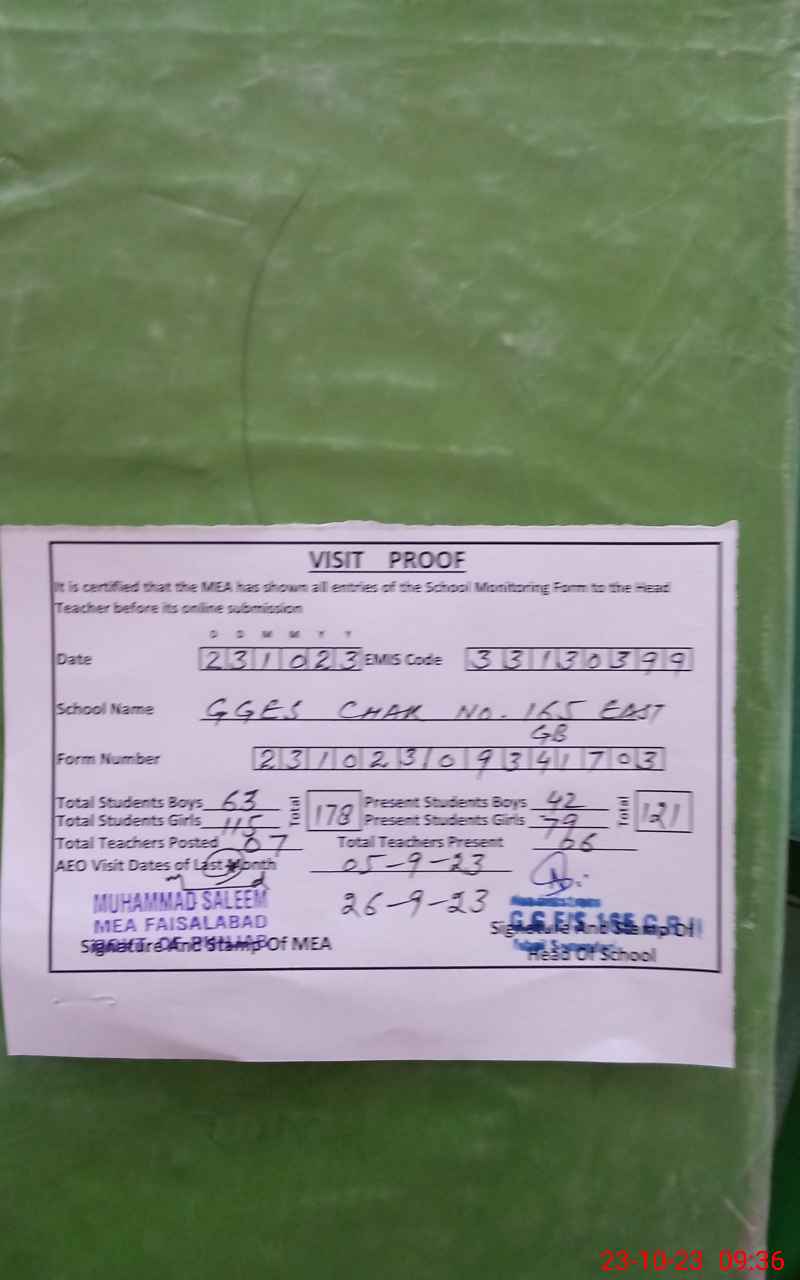 VISIT PROOF
It is certified that the MEA has shown all entries of the School Monitoring Form to the Head
Teacher before its online submission
D D M M Y Y
Date 231023 EMIS Code 33130399
School Name GGES CHAK NO. 165 EAST
GB
Form Number 23102309341703
Total Students Boys 63 Total 178 Present Students Boys 42 Total 121
Total Students Girls 115 Present Students Girls 79
Total Teachers Posted 07 Total Teachers Present 06
AEO Visit Dates of Last Month 05-9-23
26-9-23
MUHAMMAD SALEEM
MEA FAISALABAD
GOVT. OF PUNJAB
Signature And Stamp Of MEA
G.G.E/S 165 G.B
Signature And Stamp Of
Head Of School
23-10-23 09:36